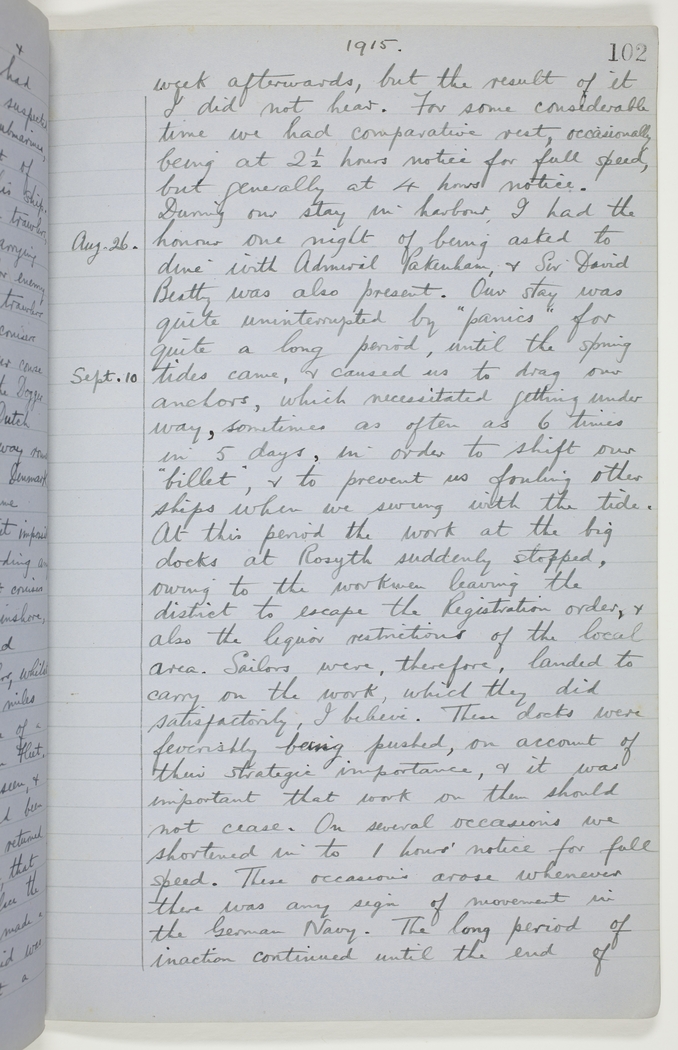 1915.
102
week afterwards, but the result of it
I did not hear. For some considerable
time we had comparative rest, occasionally
being at 2½ hours notice for full speed,
but generally at 4 hours notice.
During our stay in harbour, I had the
Aug. 26. honour one night of being asked to
dine with Admiral Pakenham, & Sir David
Beatty was also present. Our stay was
quite uninterrupted by "panics" for
quite a long period, until the spring
Sept. 10 tides came, & caused us to drag our
anchors, which necessitated getting under
way, sometimes as often as 6 times
in 5 days, in order to shift our
"billet", & to prevent us fouling other
ships when we swung with the tide.
At this period the work at the big
docks at Rosyth suddenly stopped,
owing to the workmen leaving the
district to escape the Registration order, &
also the liquor restrictions of the local
area. Sailors were, therefore, landed to
carry on the work, which they did
satisfactorily, I believe. These docks were
feverishly being pushed, on account of
their strategic importance, & it was
important that work on them should
not cease. On several occasions we
shortened in to 1 hours' notice for full
speed. These occasions arose whenever
there was any sign of movement in
the German Navy. The long period of
inaction continued until the end of